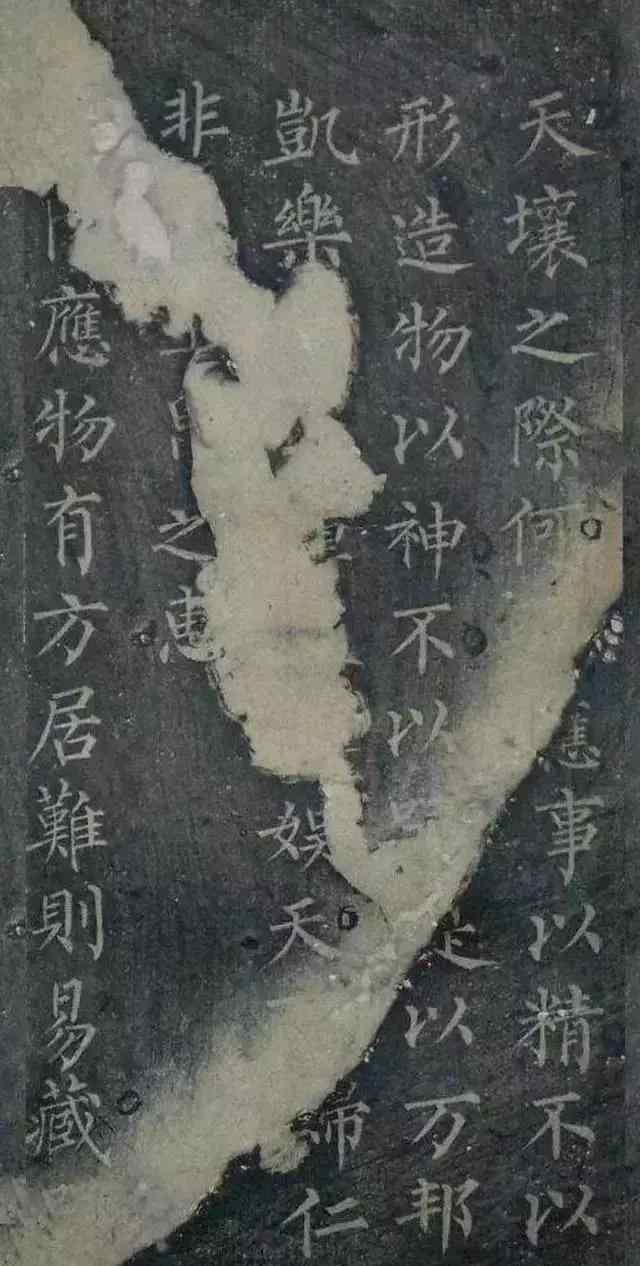 天壤之際何事以精不以
形造物以神不以以万邦
凱樂娛天歸仁
非之惠
應物有方居難則易藏